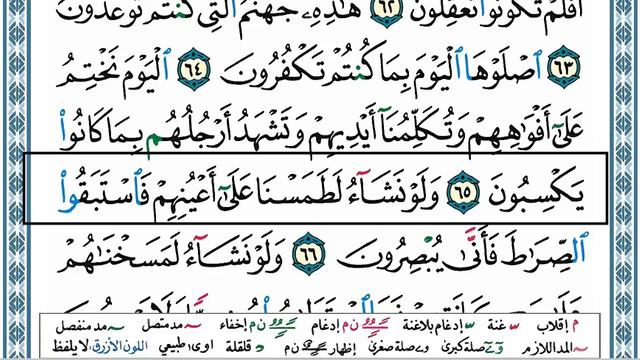 أَفَلَمْ تَكُونُوا۟ تَعْقِلُونَ ٦٢ هَٰذِهِۦ جَهَنَّمُ ٱلَّتِى كُنتُمْ تُوعَدُونَ
٦٣ ٱصْلَوْهَا ٱلْيَوْمَ بِمَا كُنتُمْ تَكْفُرُونَ ٦٤ ٱلْيَوْمَ نَخْتِمُ
عَلَىٰٓ أَفْوَٰهِهِمْ وَتُكَلِّمُنَآ أَيْدِيهِمْ وَتَشْهَدُ أَرْجُلُهُم بِمَا كَانُوا۟
يَكْسِبُونَ ٦٥ وَلَوْ نَشَآءُ لَطَمَسْنَا عَلَىٰٓ أَعْيُنِهِمْ فَٱسْتَبَقُوا۟
ٱلصِّرَٰطَ فَأَنَّىٰ يُبْصِرُونَ ٦٦ وَلَوْ نَشَآءُ لَمَسَخْنَٰهُمْ
م إقلاب غنة إدغام بلاغنة ن م إدغام ن م إخفاء مد متصل مد منفصل
المد اللازم صلة كبرى صلة صغرى إظهار ن م قلقلة اوى طبيعي اللون الأزرق لا يلفظ